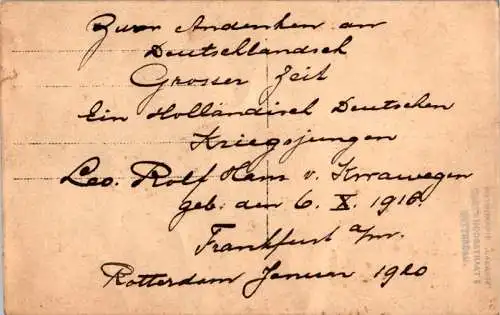 Zum Andenken an
Deutschlandsch
Grosser Zeit
Ein Holländisch Deutschen
Kriegsjungen
Leo. Rolf Hans v.
geb: den 6. X. 1916.
Frankfurt a/m.
Rotterdam Januar 1920
ROTTERDAM